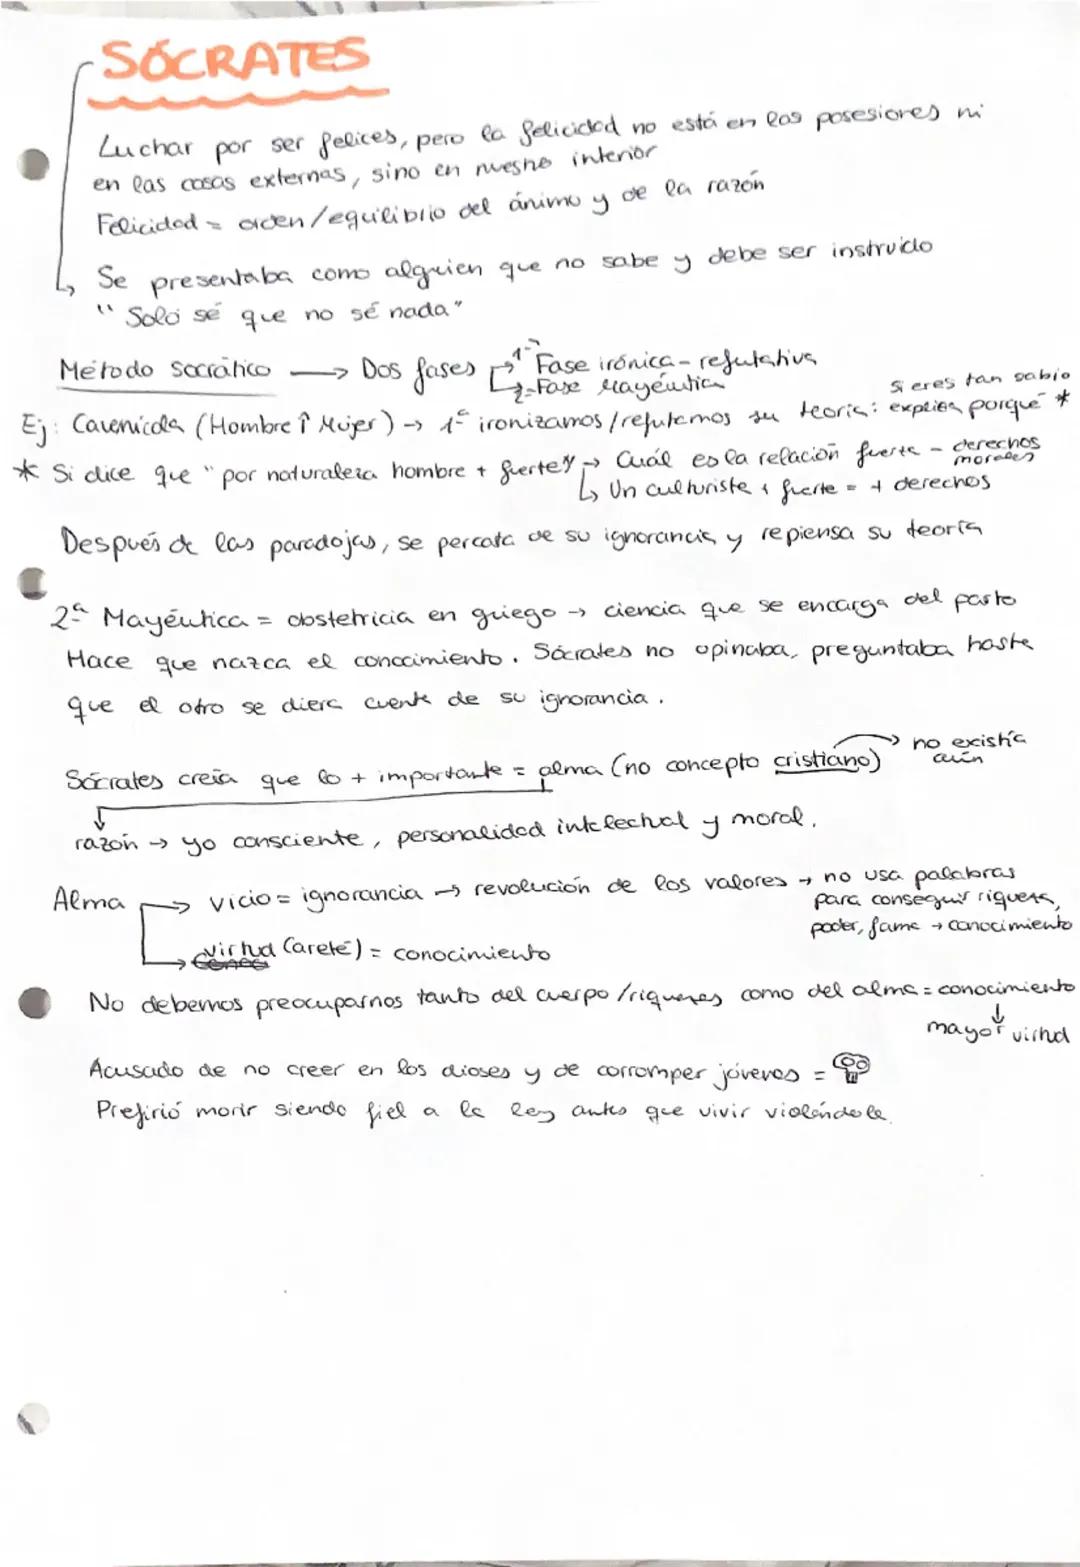 SÓCRATES
Luchar por ser felices, pero la felicidad no está en las posesiones ni
en las cosas externas, sino en nuestro interior
Felicidad = orden/equilibrio del ánimo y de la razón
Se presentaba como alguien que no sabe y debe ser instruido
"Solo sé que no sé nada"
Método socrático → Dos fases → 1ª Fase irónica - refutativa
→ 2ª Fase Mayéutica
Si eres tan sabio
Ej: Cavernícola (Hombre ↑ Mujer) → 1º ironizamos/refutamos su teoría: explica porqué *
* Si dice que "por naturaleza hombre + fuerte" → Cuál es la relación fuerte - derechos morales
↳ Un culturista + fuerte = + derechos
Después de las paradojas, se percata de su ignorancia y repiensa su teoría
2ª Mayéutica = obstetricia en griego → ciencia que se encarga del parto
Hace que nazca el conocimiento. Sócrates no opinaba, preguntaba hasta
que el otro se diera cuenta de su ignorancia.
Sócrates creía que lo + importante = alma (no concepto cristiano) → no existía aún
razón → yo consciente, personalidad intelectual y moral.
Alma → vicio = ignorancia → revolución de los valores → no usa palabras
para conseguir riqueza,
poder, fama → conocimiento
→ virtud (areté) = conocimiento
No debemos preocuparnos tanto del cuerpo/riquezas como del alma = conocimiento
↓
mayor virtud
Acusado de no creer en los dioses y de corromper jóvenes =
Prefirió morir siendo fiel a la ley antes que vivir violándola.